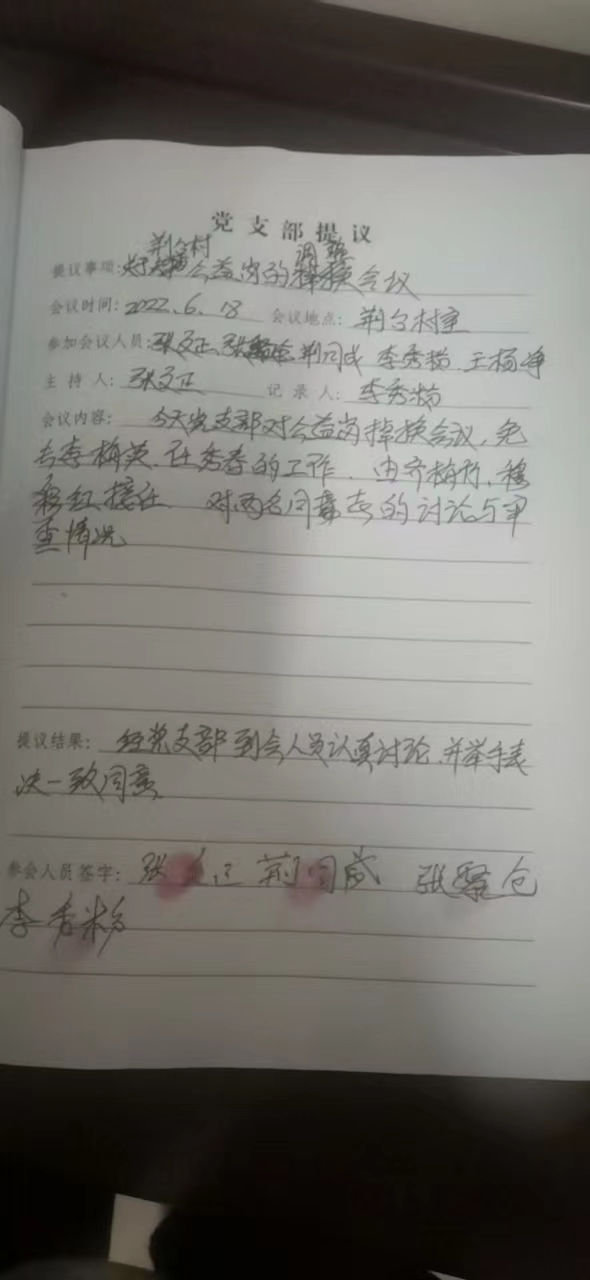 党支部提议
荆仓村 调整
提议事项: 公益岗的 换会议
会议时间: 2022.6.18 会议地点: 荆仓村室
参加会议人员: 张文正、张 荆同成 李秀粉、王杨净
主持人: 张文正 记录人: 李秀粉
会议内容: 今天党支部对公益岗掉换会议,免
去李梅英、任秀春的工作,由齐梅竹、穆
彩红接任 对两名同意去的讨论与审
查情况
提议结果: 经党支部到会人员认真讨论,并举手表
决一致同意
参会人员签字: 张文正 荆同成 张 仓
李秀粉